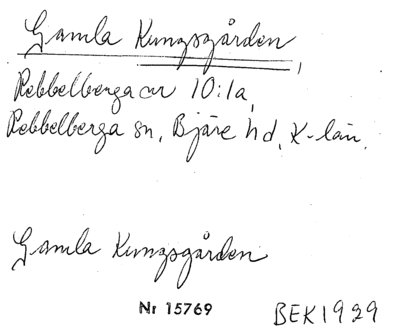 Gamla Kungsgården,
Rebbelberga nr 10:1a,
Rebbelberga sn, Bjäre hd, K-län.
Gamla Kungsgården
Nr 15769
BEK1929